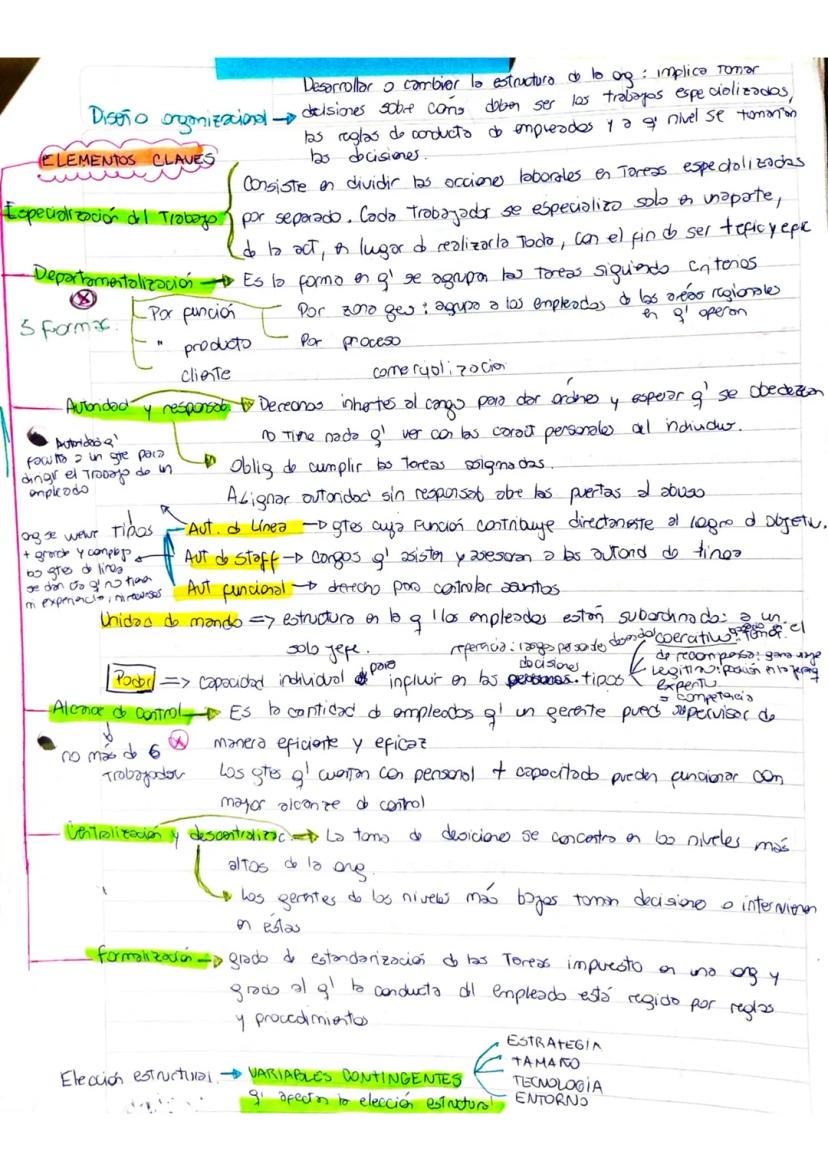 Desarrollar o cambiar la estructura de la org : implica tomar
Diseño organizacional → decisiones sobre cómo deben ser los trabajos especializados,
las reglas de conducta de empleados y a q' nivel se tomarán
las decisiones.
ELEMENTOS CLAVES
Consiste en dividir las acciones laborales en Tareas especializadas
Especialización del Trabajo por separado. Cada trabajador se especializa solo en una parte,
de la act, en lugar d realizarla toda, con el fin d ser + efic y efic
Departamentalización → Es la forma en q' se agrupan las tareas siguiendo criterios
5 formas.
Por función
" producto
cliente
Por zona geo : agrupa a los empleados de las áreas regionales
en q' operan
Por proceso
comercialización
Autoridad y responsab. → Derechos inhertes al cargo para dar órdenes y esperar q' se obedezcan
no tiene nada q' ver con las caract personales del individuo.
Autoridad q'
faculta a un gte para
dirigir el trabajo de un
empleado
Oblig de cumplir las tareas asignadas.
Asignar autoridad sin responsab abre las puertas al abuso
tipos
Aut. d Línea → gtes cuya función contribuye directamente al logro d objetiv.
Aut de staff → cargos q' asisten y asesoran a las autorid de línea
Aut funcional → derecho para controlar asuntos
org se
+ grande y
los gtes de línea
se dan cta q' no tienen
ni experiencia, ni recursos
Unidad de mando => estructura en la q' los empleados están subordinados a un
solo jefe.
Poder => capacidad individual para influir en las decisiones. tipos
coercitivo: temor
de recompensa:
Legítimo: posición en la
experto
= competencia
Alcance de control → Es la cantidad de empleados q' un gerente puede supervisar de
manera eficiente y eficaz
no más de 6
Trabajador
Los gtes q' cuentan con personal + capacitado pueden funcionar con
mayor alcance d control
Centralización y descentralizac → La toma de decisiones se concentra en los niveles más
altos de la org.
Los gerentes de los niveles más bajos toman decisiones o intervienen
en éstas
Formalización → grado d estandarización d las Tareas impuesto en una org y
grado al q' la conducta dl empleado está regido por reglas
y procedimientos
Elección estructural. → VARIABLES CONTINGENTES
q' afectan la elección estructural
ESTRATEGIA
TAMAÑO
TECNOLOGÍA
ENTORNO